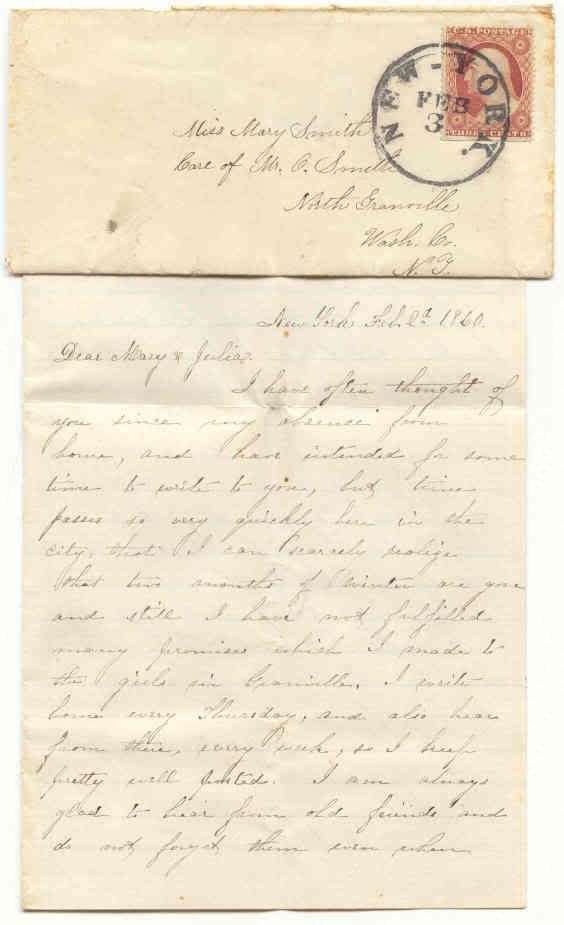 U.S. POSTAGE
NEW-YORK.
FEB
3
THREE CENTS
Miss Mary Smith
Care of Mr. O. Smith
North Granville
Wash. Co.
N.Y.
New York Feb. 2d 1860.
Dear Mary & Julia.
I have often thought of
you since my absence from
home, and have intended for some
time to write to you, but time
passes so very quickly here in the
city, that I can scarcely realize
that two months of Winter are gone
and still I have not fulfilled
many promises which I made to
the girls in Granville. I write
home every Thursday, and also hear
from there, every week, so I keep
pretty well posted. I am always
glad to hear from old friends and
do not forget them even when